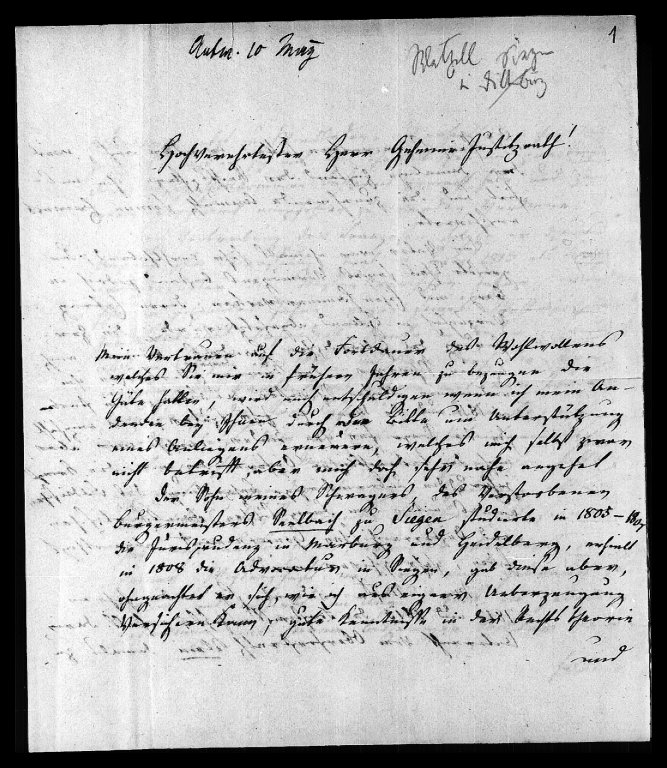 Antw. 10 May
1
Siegen
in Dillenburg
Hochverehrtester Herr Geheimer Justizrath!
Mein Vertrauen auf die Fortdauer des Wohlwollens
welches Sie mir in frühern Jahren zu bezeugen die
Güte hatten, wird mich entschuldigen wenn ich mein An-
denken bey Ihnen durch die Bitte um Unterstützung
eines Anliegens erneuere, welches mich selbst zwar
nicht betrifft, aber mich doch sehr nahe angehet
Der Sohn meines Schwagers, des Verstorbenen
Burgermeisters Seelbach zu Siegen studierte in 1805–1807
die Jurisprudenz in Marburg und Heidelberg, erhielt
in 1808 die Advocatur in Siegen, gab diese aber,
ohngeachtet er sich, wie ich aus eigner Ueberzeugung
Versichern kann, gute Kenntnisse in der Rechts Theorie
und